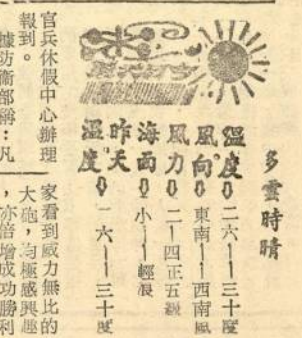 多雲時晴
溫度：二六——三十度
風向：東南——西南風
風力：二——四正五級
海面：小——輕浪
昨天
溫度：一六——三十度
官兵休假中心辦理
報到。
據防衛部稱：凡
家看到威力無比的
大砲，均極感興趣
，亦倍增成功勝利